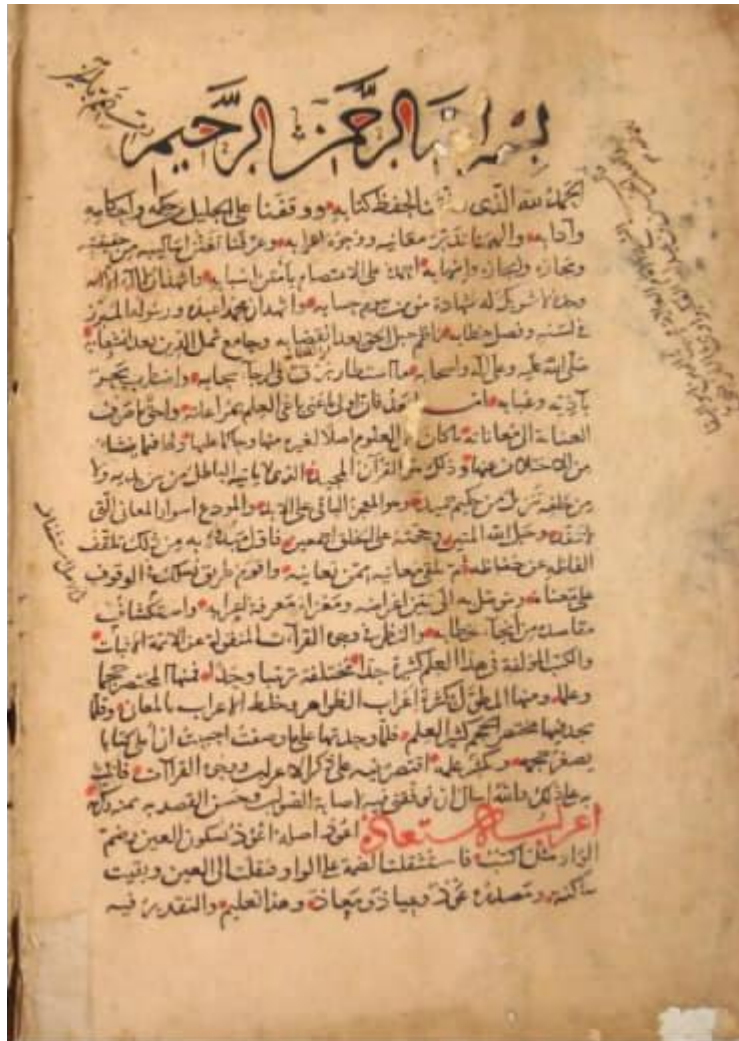 بسم الله الرحمن الرحيم
الحمد لله الذي لحفظ كتابه ووقفنا على الجليل من حكمه واحكامه
وآدابه والهمنا تدبر معانيه ووجوه اعرابه وعرفنا تفنن اساليبه من حقيقته
ومجازه وايجازه واسهابه احمده على الاعتصام بامتن اسبابه واشهد ان لا اله الا الله
وحده لا شريك له شهادة مؤمن بيوم حسابه واشهد ان محمدا عبده ورسوله المبرز
في لسنه وفصل خطابه ناظم حبل الحق بعد انقضابه وجامع شمل الدين بعد انشعابه
صلى الله عليه وعلى آله واصحابه ما استطار برق في ارجا سحابه واضطرب بحر
بآذيه وعبابه فان اولى ما عنى باغى العلم بمراعاته واحق ما صرف
العناية الى معاناته ما كان من العلوم اصلا لغيره منها وحاكما عليها ولها فيما ينشا
من الاختلاف عنها وذلك هو القرآن المجيد الذي لا ياتيه الباطل من بين يديه ولا
من خلفه تنزيل من حكيم حميد وهو المعجز الباقي على الابد والمودع اسرار المعاني التي
لا تنفد وحبل الله المتين وحجته على الخلق اجمعين فاول مبدوء به من ذلك تلقف
الفاظه عن حفاظه ثم تلقى معانيه ممن يعانيه واقوم طريق يسلك في الوقوف
على معناه ويتوصل به الى تبين اغراضه ومغزاه معرفة اعرابه واستكشاف
مقاصده من انحاء خطابه والنظر في وجوه القراآت المنقولة عن الائمة الاثبات
والكتب المؤلفة في هذا العلم كثيرة جدا مختلفة ترتيبا وحدا فمنها المختصر حجما
وعلما ومنها المطول بكثرة اعراب الظواهر وخلط الاعراب بالمعاني وقلما
تجد فيها مختصر الحجم كثير العلم فلما وجدتها على ما وصفت احببت ان املى كتابا
يصغر حجمه ويكثر علمه اقتصر فيه على ذكر الاعراب ووجوه القراآت فاتيت
به على ذلك والله اسال ان يوفقني فيه اصابة الصواب وحسن القصد به بمنه وكرمه
اعراب الاستعاذة اعوذ اصله اعوذ بسكون العين وضم
الواو مثل اكتب فاستثقلت الضمة على الواو فنقلت الى العين وبقيت
ساكنة ومصدره عوذ وعياذ ومعاذ وهذا تعليم والتقدير فيه